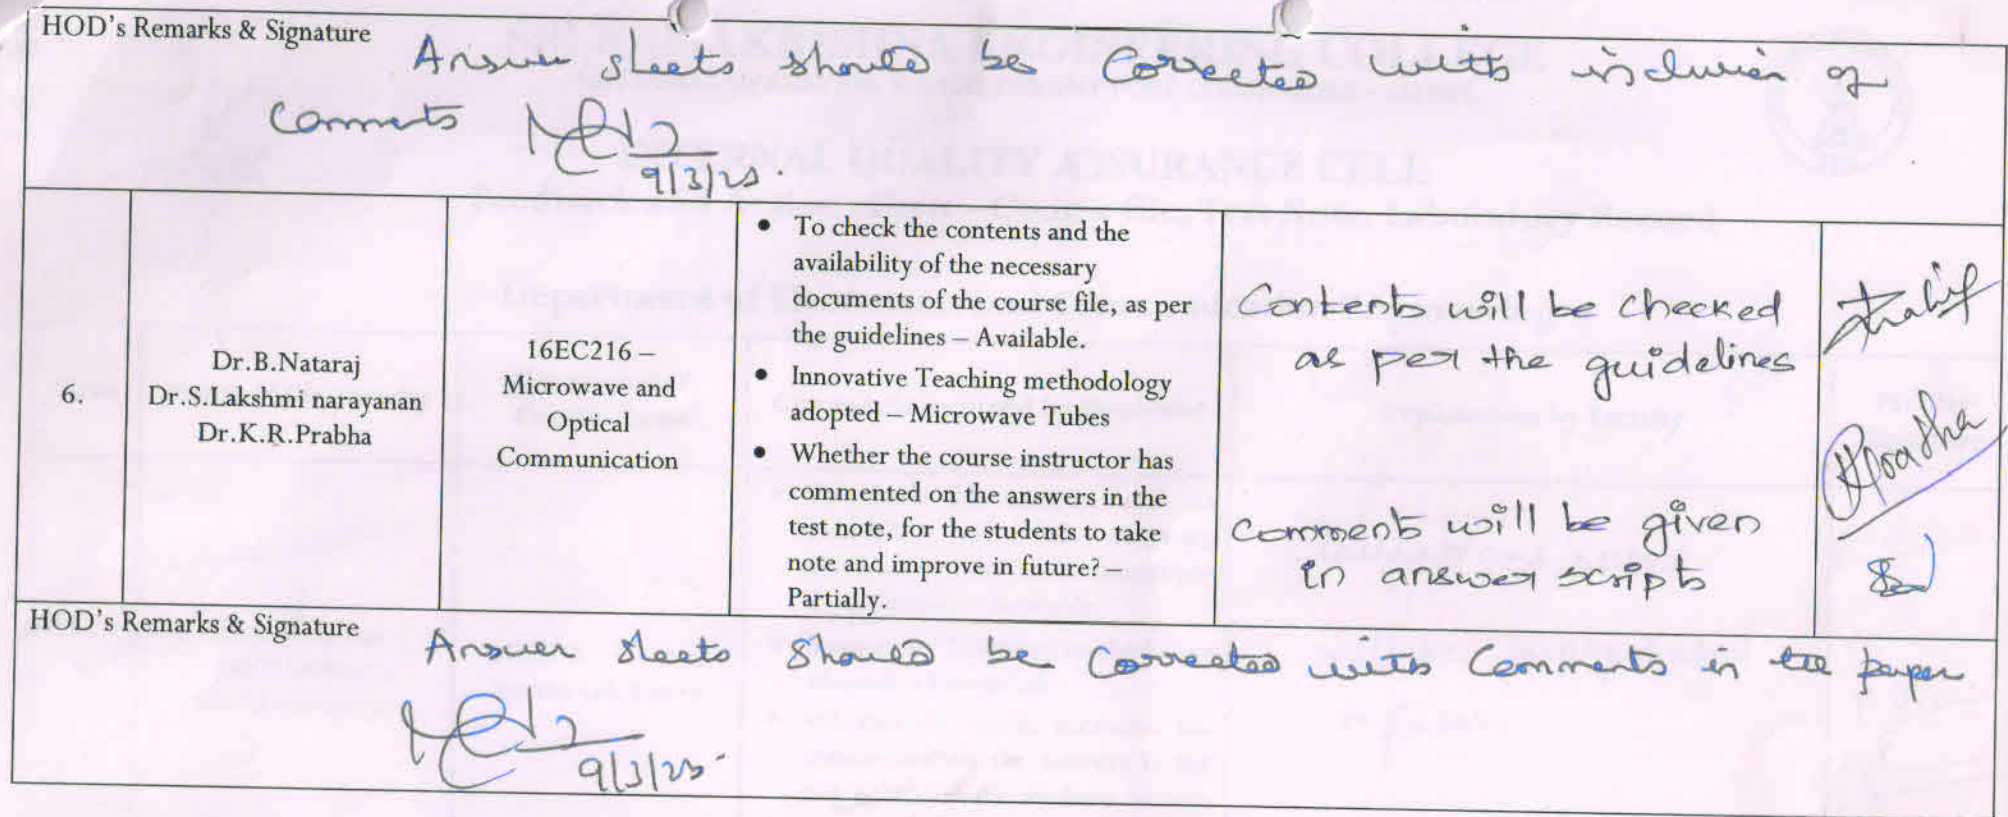 HOD's Remarks & Signature
Answer sheets should be Corrected with inclusion of
Comments
9/3/23.
6.
Dr.B.Nataraj
Dr.S.Lakshmi narayanan
Dr.K.R.Prabha
16EC216 –
Microwave and
Optical
Communication
• To check the contents and the
availability of the necessary
documents of the course file, as per
the guidelines – Available.
• Innovative Teaching methodology
adopted – Microwave Tubes
• Whether the course instructor has
commented on the answers in the
test note, for the students to take
note and improve in future? –
Partially.
Contents will be checked
as per the guidelines
Comments will be given
in answer scripts
HOD's Remarks & Signature
Answer sheets should be Corrected with Comments in the paper
9/3/23.